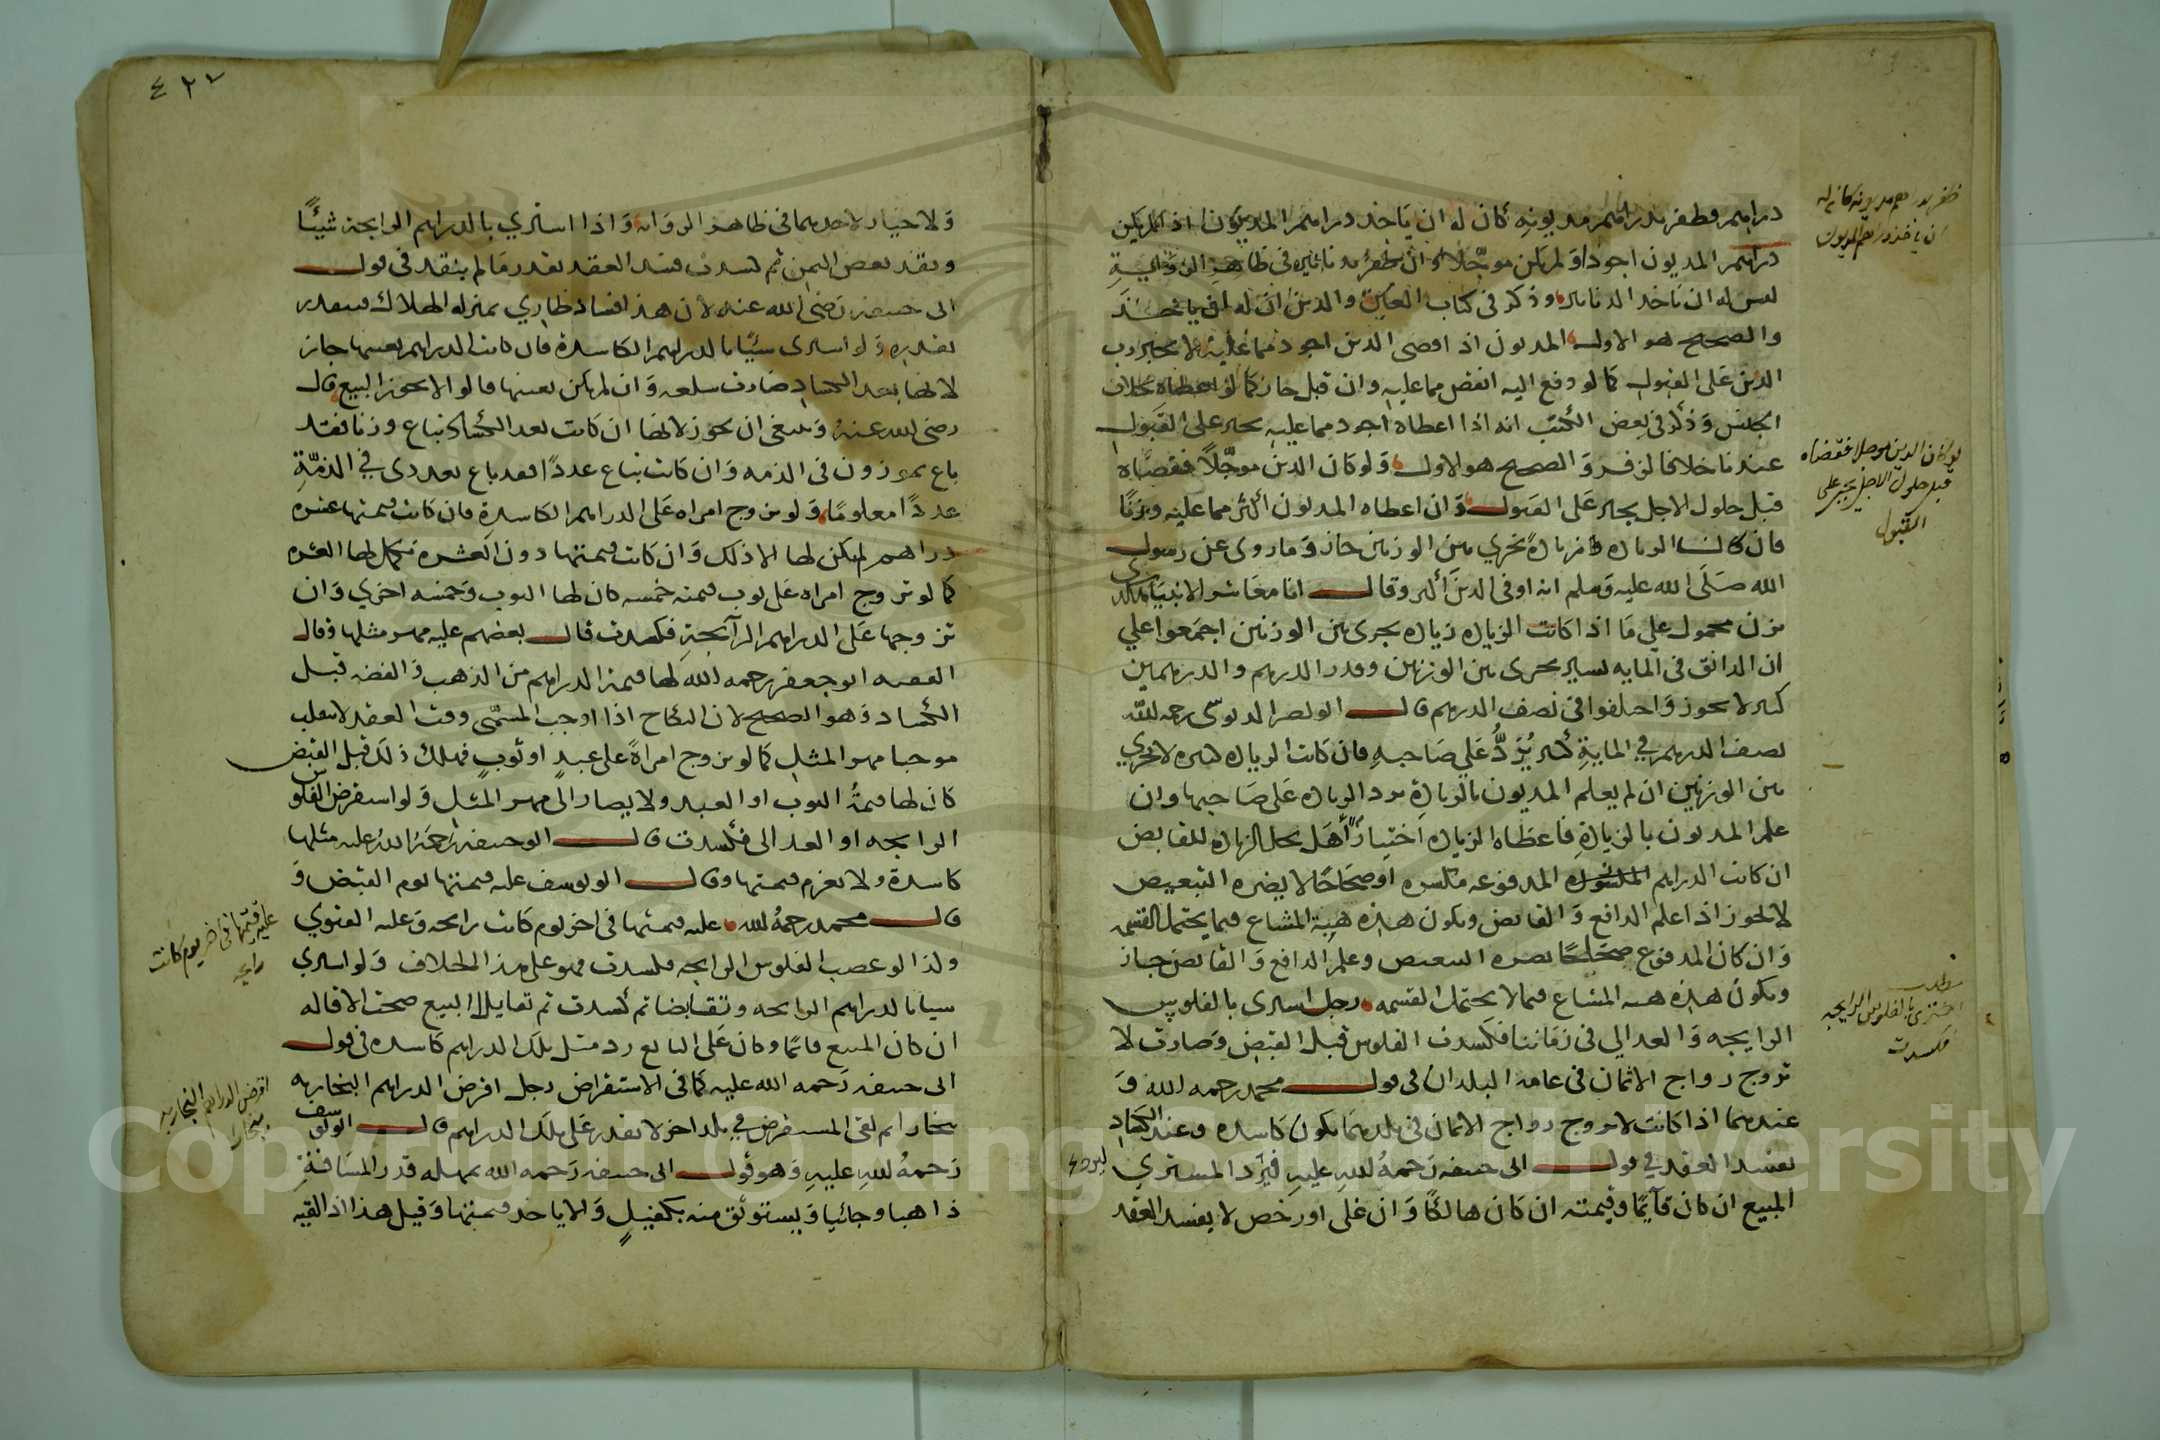 دراهم وظفر بدراهم مديونه كان له ان ياخد دراهم المديون اذا لم يكن
دراهم المديون اجود او لم يكن موجلا وان ظفر بدنانيره في ظاهر الرواية
ليس له ان ياخد الدنانير وذكر في كتاب العين والدين ان له ان ياخد
والصحيح هو الاول المديون اذا اوفى الدين اجود مما عليه لا يجبر رب
الدين على القبول كما لو دفع اليه انقص مما عليه وان قبل جاز كما لو اعطاه خلاف
الجنس وذكر في بعض الكتب انه اذا اعطاه اجود مما عليه يجبر على القبول
عندنا خلافا لزفر والصحيح هو الاول ولو كان الدين موجلا فقضاه
قبل حلول الاجل يجبر على القبول وان اعطاه المديون اكثر مما عليه وزنا
فان كانت الزيادة زيادة تجري بين الوزنين جاز وما روى عن رسول
الله صلى الله عليه وسلم انه اوفى الدين اكثر وقال انا معاشر الانبياء هكذا
نزن محمول على ما اذا كانت الزيادة زيادة يجرى بين الوزنين اجمعوا على
ان الدانق في المايه يسير يجرى بين الوزنين وقدر الدرهم والدرهمين
كثير لا يجوز واختلفوا في نصف الدرهم قال ابو نصر الدبوسى رحمه الله
نصف الدرهم في الماية كثير يرد على صاحبه فان كانت الزيادة كثيره لا تجري
بين الوزنين ان لم يعلم المديون بالزيادة يرد الزيادة على صاحبها وان
علم المديون بالزيادة فاعطاه الزيادة اختيارا هل يحل الزيادة للقابض
ان كانت الدراهم المدفوعه مكسره او صحاحا لا يضره التبعيض
لا يجوز اذا علم الدافع والقابض ويكون هذه هبة المشاع فيما يحتمل القسمه
وان كان المدفوع صحاحا يضره التبعيض وعلم الدافع والقابض جاز
ويكون هذه هبه المشاع فيما لا يحتمل القسمه رجل اشترى بالفلوس
الرايجه والعدالي في زماننا فكسدت الفلوس قبل القبض وصارت لا
تروج رواج الاثمان في عامه البلدان في قول محمد رحمه الله و
عندهما اذا كانت لا تروج رواج الاثمان في بلدهما يكون كاسده وعند الكساد
يفسد العقد في قول ابى حنيفه رحمه الله عليه فيرد المشتري
المبيع ان كان قايما وقيمته ان كان هالكا وان غلى او رخص لا يفسد العقد
ظفر بدراهم مديونه كان له
ان ياخذ دراهم المديون
لو كان الدين موجلا فقضاه
قبل حلول الاجل يجبر على
القبول
مطلب
اشترى بالفلوس الرايجه
فكسدت
٤٢٧
ولا خيار لاحدهما في ظاهر الرواية واذا اشتري بالدراهم الرايجة شيئا
ونقد بعض الثمن ثم كسدت فسد العقد بقدر ما لم ينقد في قول
ابى حنيفه رضى الله عنه لان هذا فساد طاري بمنزله الهلاك فيتقدر
بقدره ولو اشترى شيئا بالدراهم الكاسدة فان كانت الدراهم بعينها جاز
لانها بعد الكساد صارت سلعه وان لم يكن بعينها قالوا لا يجوز البيع قال
رضى الله عنه وينبغي ان يجوز لانها ان كانت بعد الكساد تباع وزنا فقد
باع بموزون في الذمه وان كانت تباع عددا فقد باع بعددى في الذمة
عددا معلوما ولو تزوج امراه على الدراهم الكاسدة فان كانت قيمتها عشره
دراهم لم يكن لها الا ذلك وان كانت قيمتها دون العشره تكمل لها العشره
كما لو تزوج امراه على ثوب قيمته خمسه كان لها الثوب وخمسه اخري وان
تزوجها على الدراهم الرايجة فكسدت قال بعضهم عليه مهر مثلها وقال
الفقيه ابو جعفر رحمه الله لها قيمة الدراهم من الذهب والفضه قبل
الكساد وهو الصحيح لان النكاح اذا اوجب المسمى وقت العقد لا ينقلب
موجبا مهر المثل كما لو تزوج امراة على عبد او ثوب فهلك ذلك قبل القبض
كان لها قيمة الثوب او العبد ولا يصار الى مهر المثل ولو استقرض الفلوس
الرايجه او العدالى فكسدت قال ابو حنيفه رحمة الله عليه مثلها
كاسدة ولا يغرم قيمتها وقال ابو يوسف عليه قيمتها يوم القبض و
قال محمد رحمه الله عليه قيمتها في اخر يوم كانت رايجه وعليه الفتوي
ولذا لو غصب الفلوس الرايجه فكسدت فهو على هذا الخلاف ولو اشترى
شيا بالدراهم الرايجه وتقابضا ثم كسدت ثم تقايلا البيع صحت الاقاله
ان كان المبيع قايما وكان على البايع رد مثل تلك الدراهم كاسده في قول
ابى حنيفه رحمه الله عليه كما في الاستقراض رجل اقرض الدراهم البخاريه
ببخارا ثم لقى المستقرض في بلد اخر لا يقدر على تلك الدراهم قال ابو يوسف
رحمه الله عليه وهو قول ابى حنيفه رحمه الله يمهله قدر المسافة
ذاهبا وجائيا ويستوثق منه بكفيل والا ياخد قيمتها وقيل هذا اذا لقيه
عليه قيمتها في اخر يوم كانت
رايجه
اقرض الدراهم البخاريه
ببخارا
Copyright © King Saud University